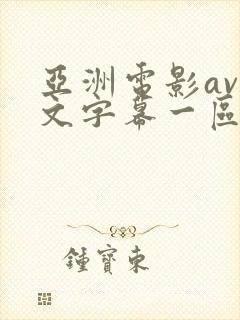 亞洲電影av
文字幕一區
鍾寶東